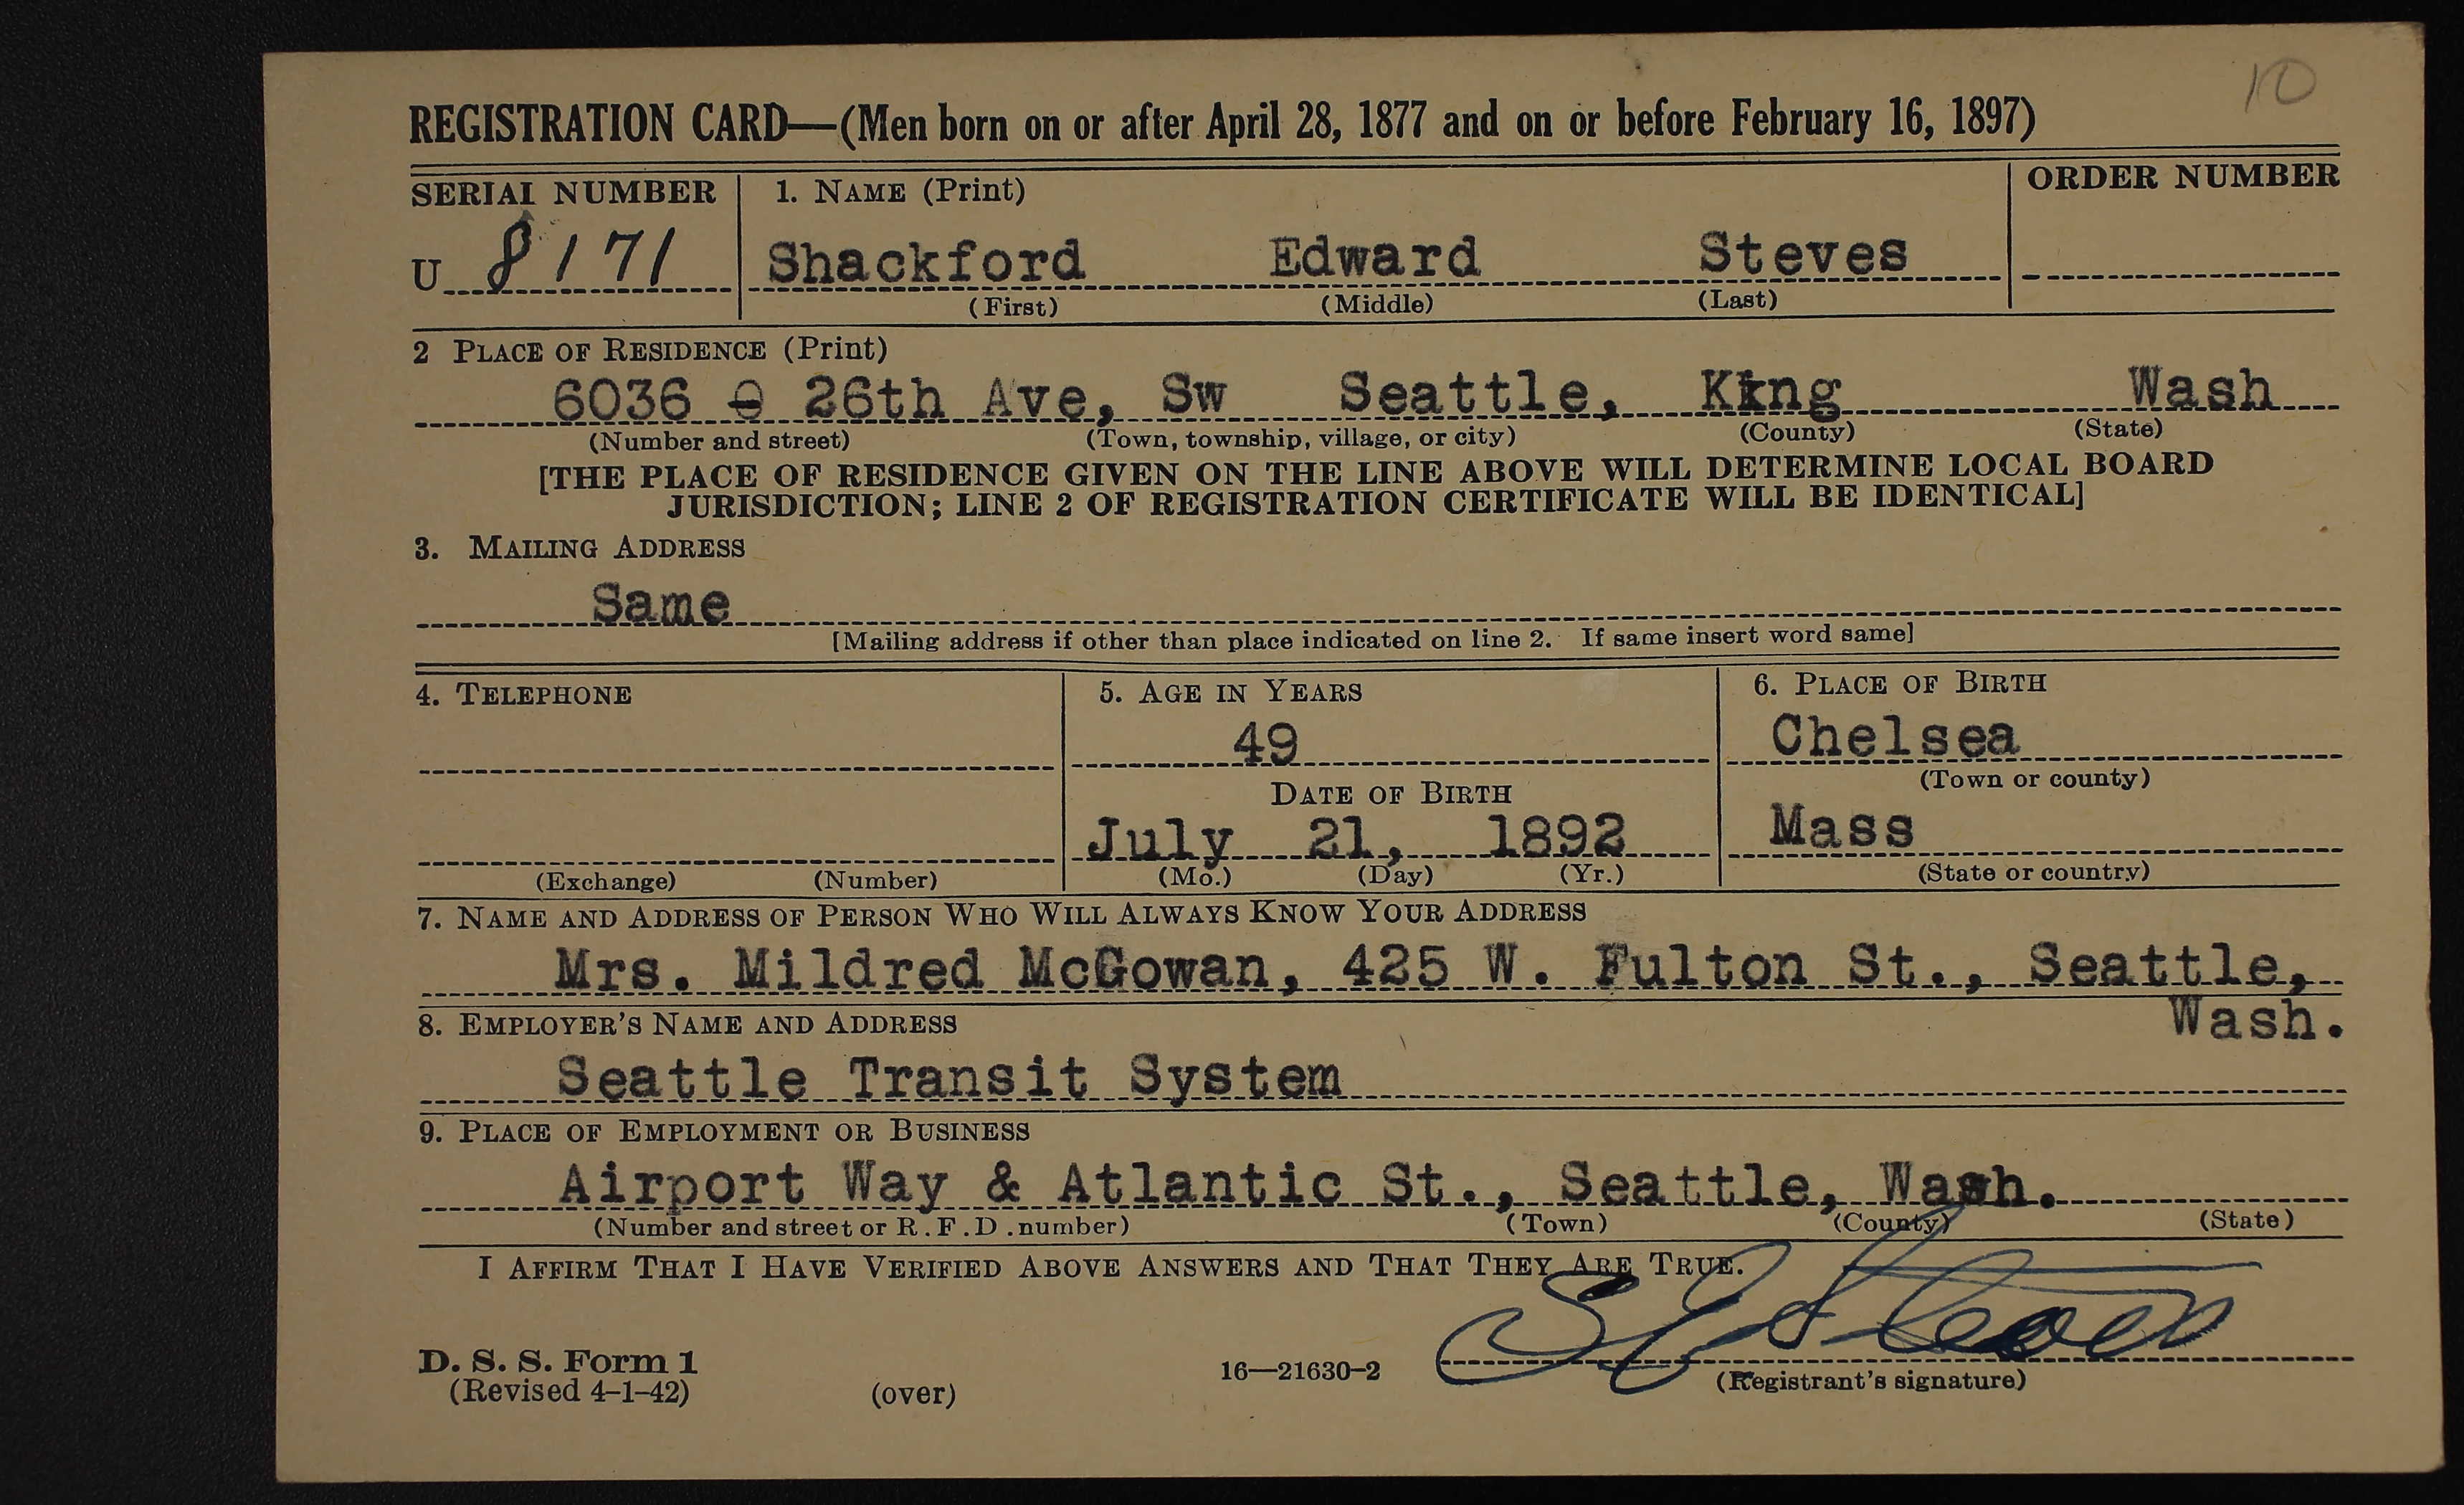 10
REGISTRATION CARD—(Men born on or after April 28, 1877 and on or before February 16, 1897)
SERIAL NUMBER 1. NAME (Print) ORDER NUMBER
U 8171 Shackford Edward Steves
(First) (Middle) (Last)
2 PLACE OF RESIDENCE (Print)
6036 26th Ave, Sw Seattle, King Wash
(Number and street) (Town, township, village, or city) (County) (State)
[THE PLACE OF RESIDENCE GIVEN ON THE LINE ABOVE WILL DETERMINE LOCAL BOARD
JURISDICTION; LINE 2 OF REGISTRATION CERTIFICATE WILL BE IDENTICAL]
3. MAILING ADDRESS
Same
[Mailing address if other than place indicated on line 2. If same insert word same]
4. TELEPHONE 5. AGE IN YEARS 6. PLACE OF BIRTH
49 Chelsea
(Town or county)
DATE OF BIRTH
July 21, 1892 Mass
(Exchange) (Number) (Mo.) (Day) (Yr.) (State or country)
7. NAME AND ADDRESS OF PERSON WHO WILL ALWAYS KNOW YOUR ADDRESS
Mrs. Mildred McGowan, 425 W. Fulton St., Seattle,
Wash.
8. EMPLOYER'S NAME AND ADDRESS
Seattle Transit System
9. PLACE OF EMPLOYMENT OR BUSINESS
Airport Way & Atlantic St., Seattle, Wash.
(Number and street or R.F.D. number) (Town) (County) (State)
I AFFIRM THAT I HAVE VERIFIED ABOVE ANSWERS AND THAT THEY ARE TRUE.
S E Steves
D. S. S. Form 1
(Revised 4-1-42) (over) 16—21630-2 (Registrant's signature)